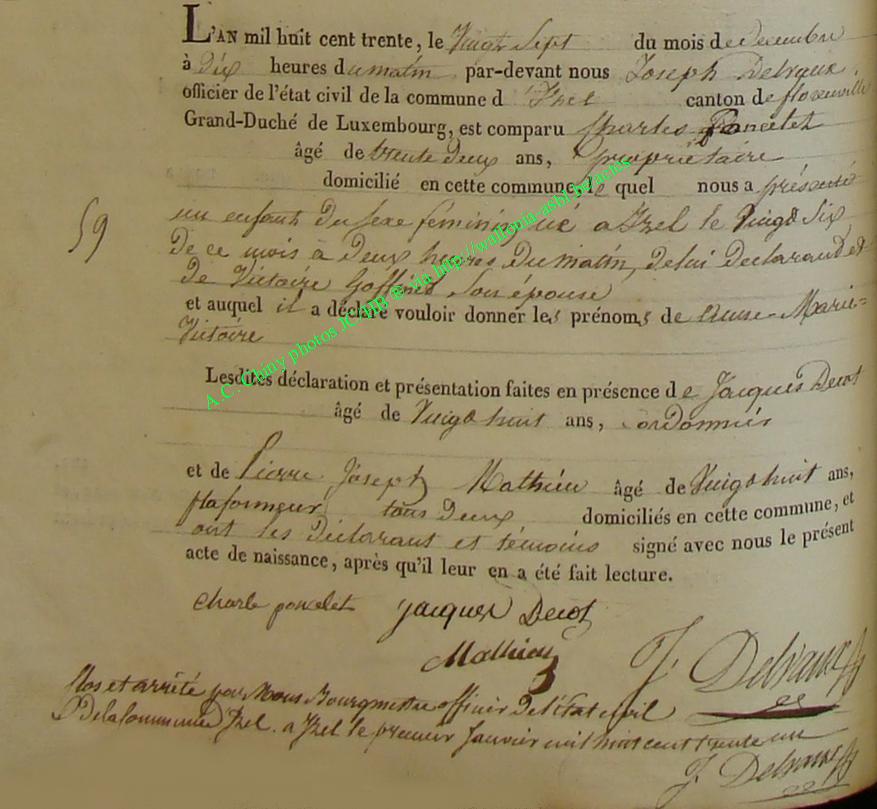 L'AN mil huit cent trente, le Vingt Sept du mois de decembre
à Dix heures du matin par-devant nous Joseph Delvaux
officier de l'état civil de la commune d'Izel canton de florenville
Grand-Duché de Luxembourg, est comparu Charles Poncelet
âgé de trente Deux ans, propriétaire
domicilié en cette commune, le quel nous a présenté
59
un enfant du sexe féminin, né a Izel le Vingt Six
De ce mois à Deux heures Du matin, de lui Declarant et
De Victoire Goffinet Son épouse
et auquel il a déclaré vouloir donner les prénoms de Anne-Marie-
Victoire
A.C. Chiny photos JCHHB ® via http://wallonia-asbl.be/actes
Lesdites déclaration et présentation faites en présence de Jacques Decot
âgé de Vingt huit ans, Cordonnier
et de Pierre Joseph Mathieu âgé de Vingt huit ans,
plafonneur, tous Deux domiciliés en cette commune, et
ont les Déclarant et témoins signé avec nous le présent
acte de naissance, après qu'il leur en a été fait lecture.
Charle poncelet Jacques Decot
Mathieu J. Delvaux
Clos et arrêté par Nous Bourgmestre officier De l'état civil
De la Commune D'Izel. a Izel le premier Janvier mil huit cent trente un
J. Delvaux